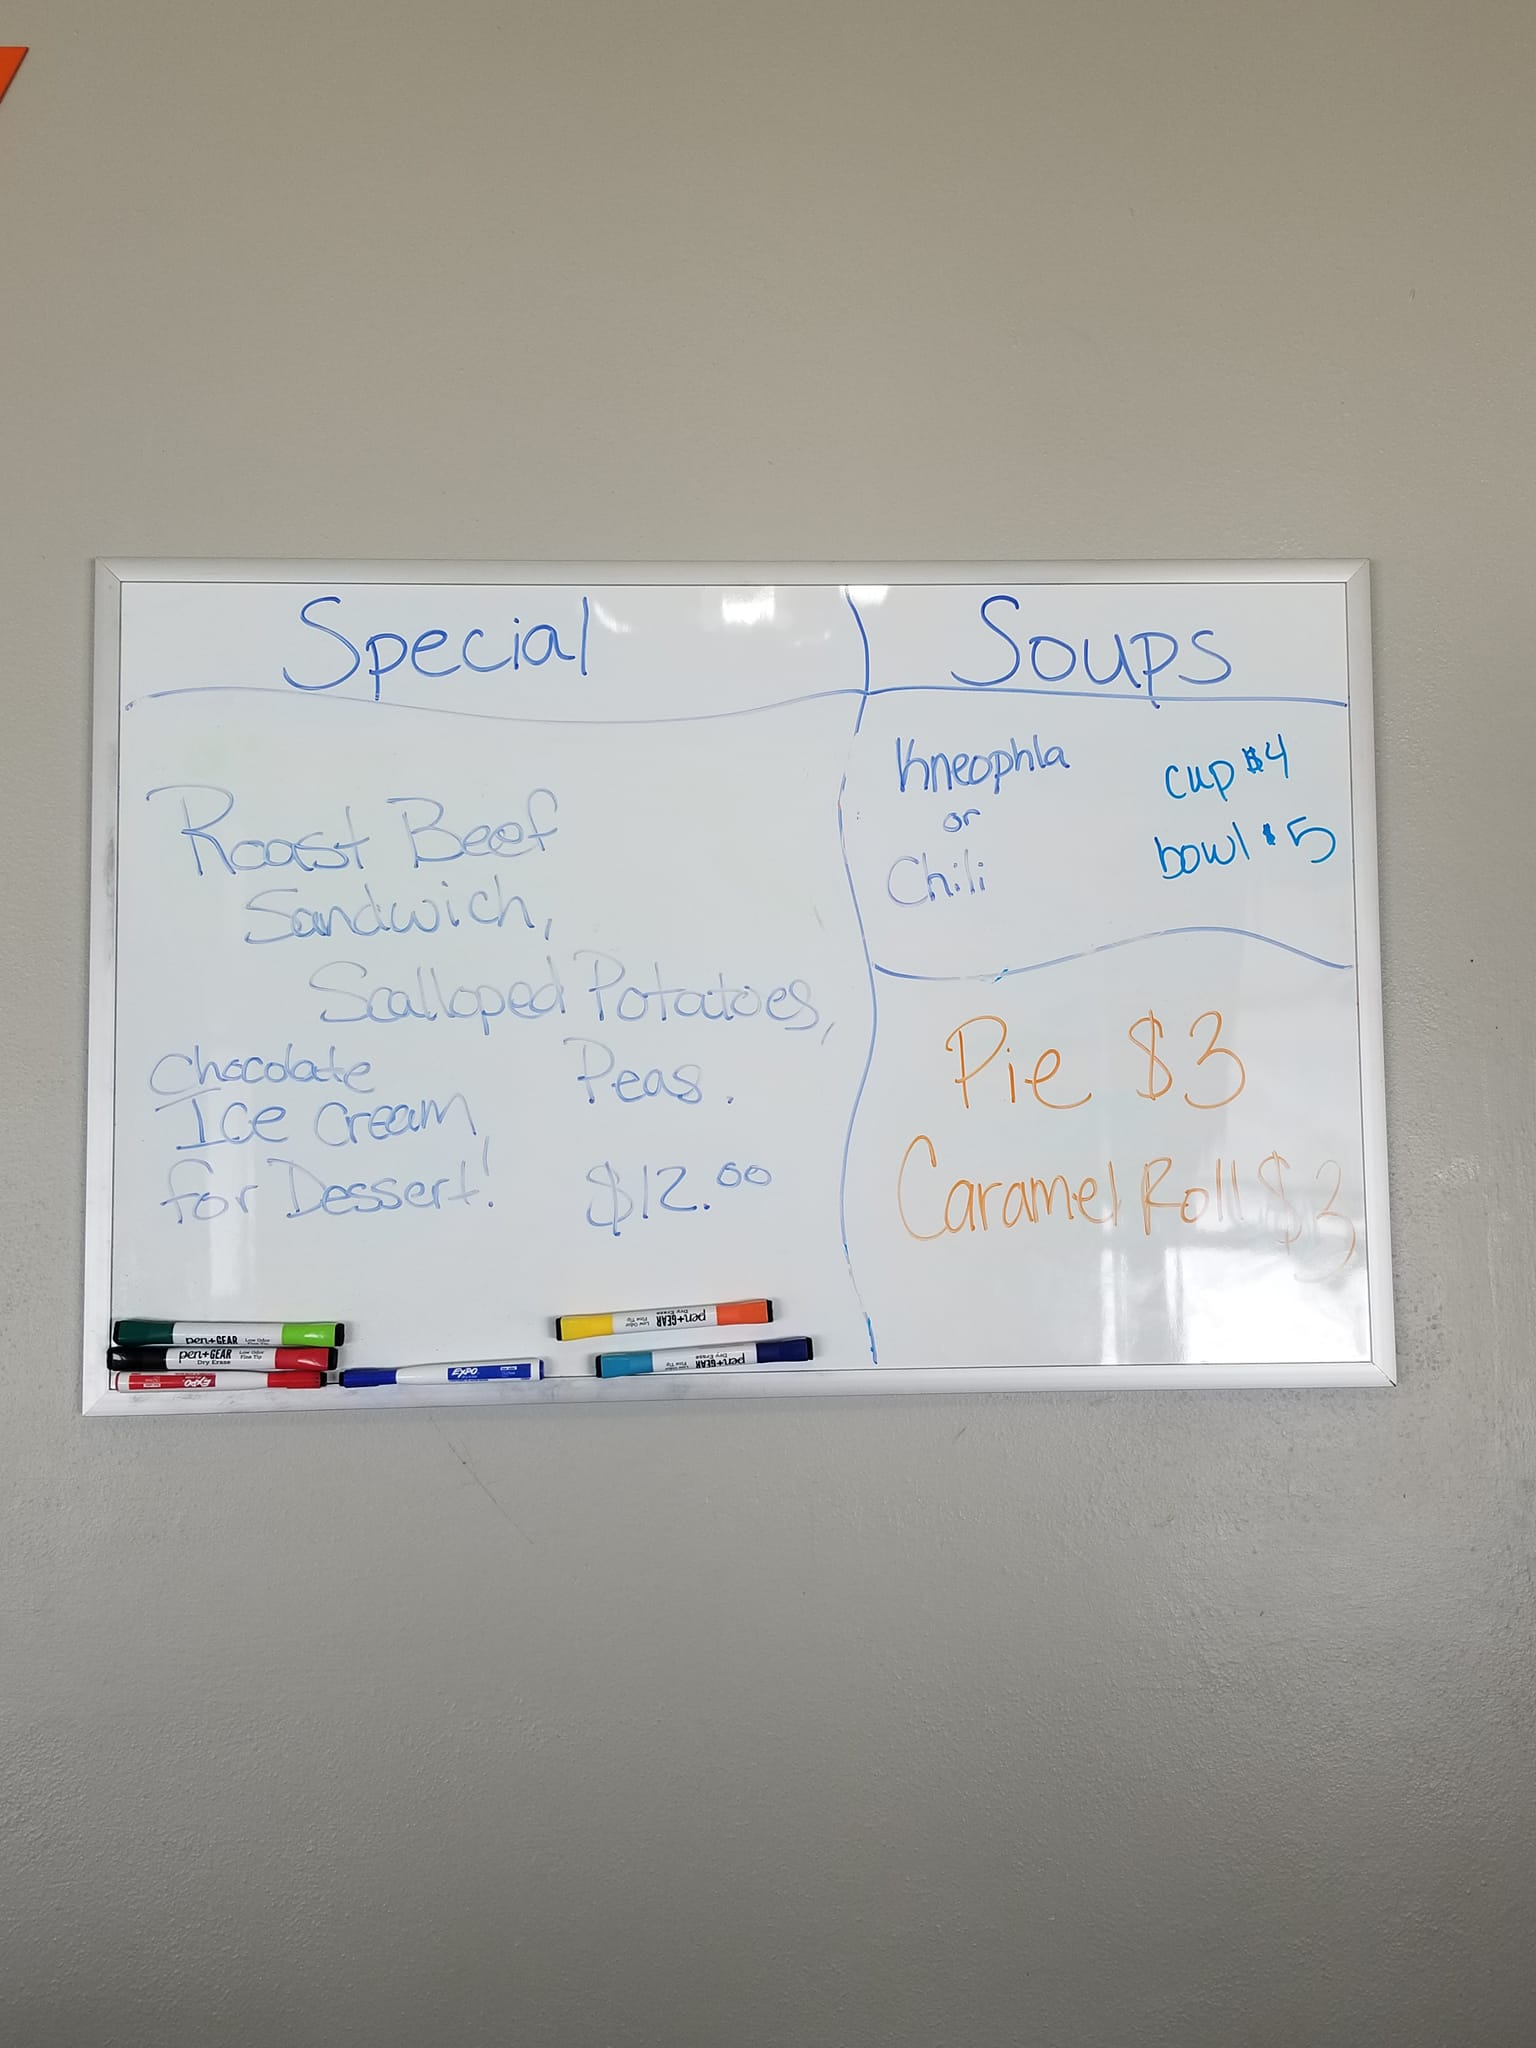 Special
Roast Beef
Sandwich,
Scalloped Potatoes,
Peas.
Chocolate
Ice Cream
for Dessert!
$12.00
Soups
Kneophla
or
Chili
cup $4
bowl $5
Pie $3
Caramel Roll $3
pen+GEAR Low Odor
pen+GEAR Low Odor
Dry Erase Fine Tip
EXPO
EXPO
pen+GEAR Low Odor
Dry Erase Fine Tip
pen+GEAR Low Odor
Dry Erase Fine Tip